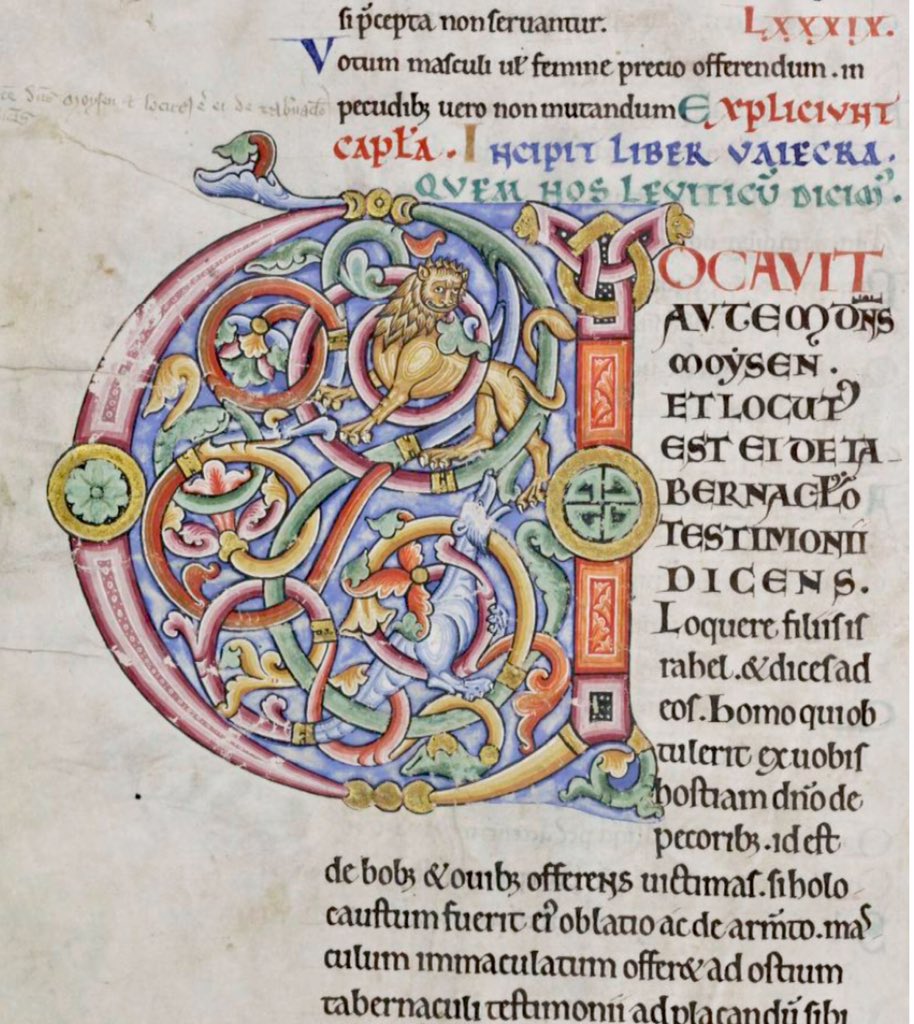 si p̄cepta non seruantur. LXXXIX.
Votum masculi ul' femine precio offerendum. in
pecudibꝫ uero non mutandum EXPLICIVNT
CAPL̄A. INCIPIT LIBER VAIECRA.
QVEM NOS LEVITICŪ DICIMꝰ.
VOCAVIT
AVTEM DN̄S
MOẎSEN.
ET LOCUTꝰ
EST EI DE TA
BERNACL̄O
TESTIMONII
DICENS.
Loquere filiis is
rahel. & dices ad
eos. Homo qui ob
tulerit ex uobis
hostiam dn̄o de
pecoribꝫ. id est
de bobꝫ & ouibꝫ offerens uictimas. si holo
caustum fuerit eiꝰ oblatio ac de arm̄to. mas
culum immaculatum offer& ad ostium
tabernaculi testimonii ad placandū sibi